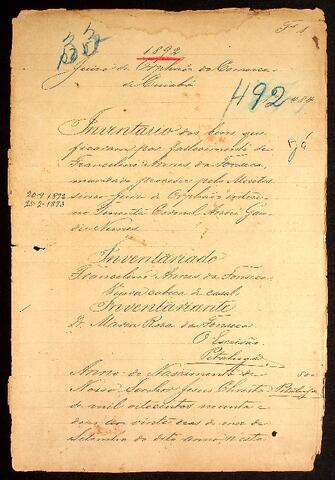 33
Fs 1
1892
Juizo de Orphãos da Comarca
de Cuiabá
492
484
Inventario dos bens que
ficaram por fallecimento de
Francelino Annes da Fonseca,
mandado proceder pelo
Juiz de Orphãos
Tenente Coronel
Nunes
já
20-9-1892
25-2-1893
Inventariado
Francelino Annes da Fonseca
Viuva cabeça de casal
Inventariante
D. Maria Rosa da Fonseca
O Escrivão
Anno do Nascimento de
Nosso Senhor Jesus Christo
de mil oitocentos noventa e
dous, aos vinte dias do mez de
Setembro do dito anno, n'esta